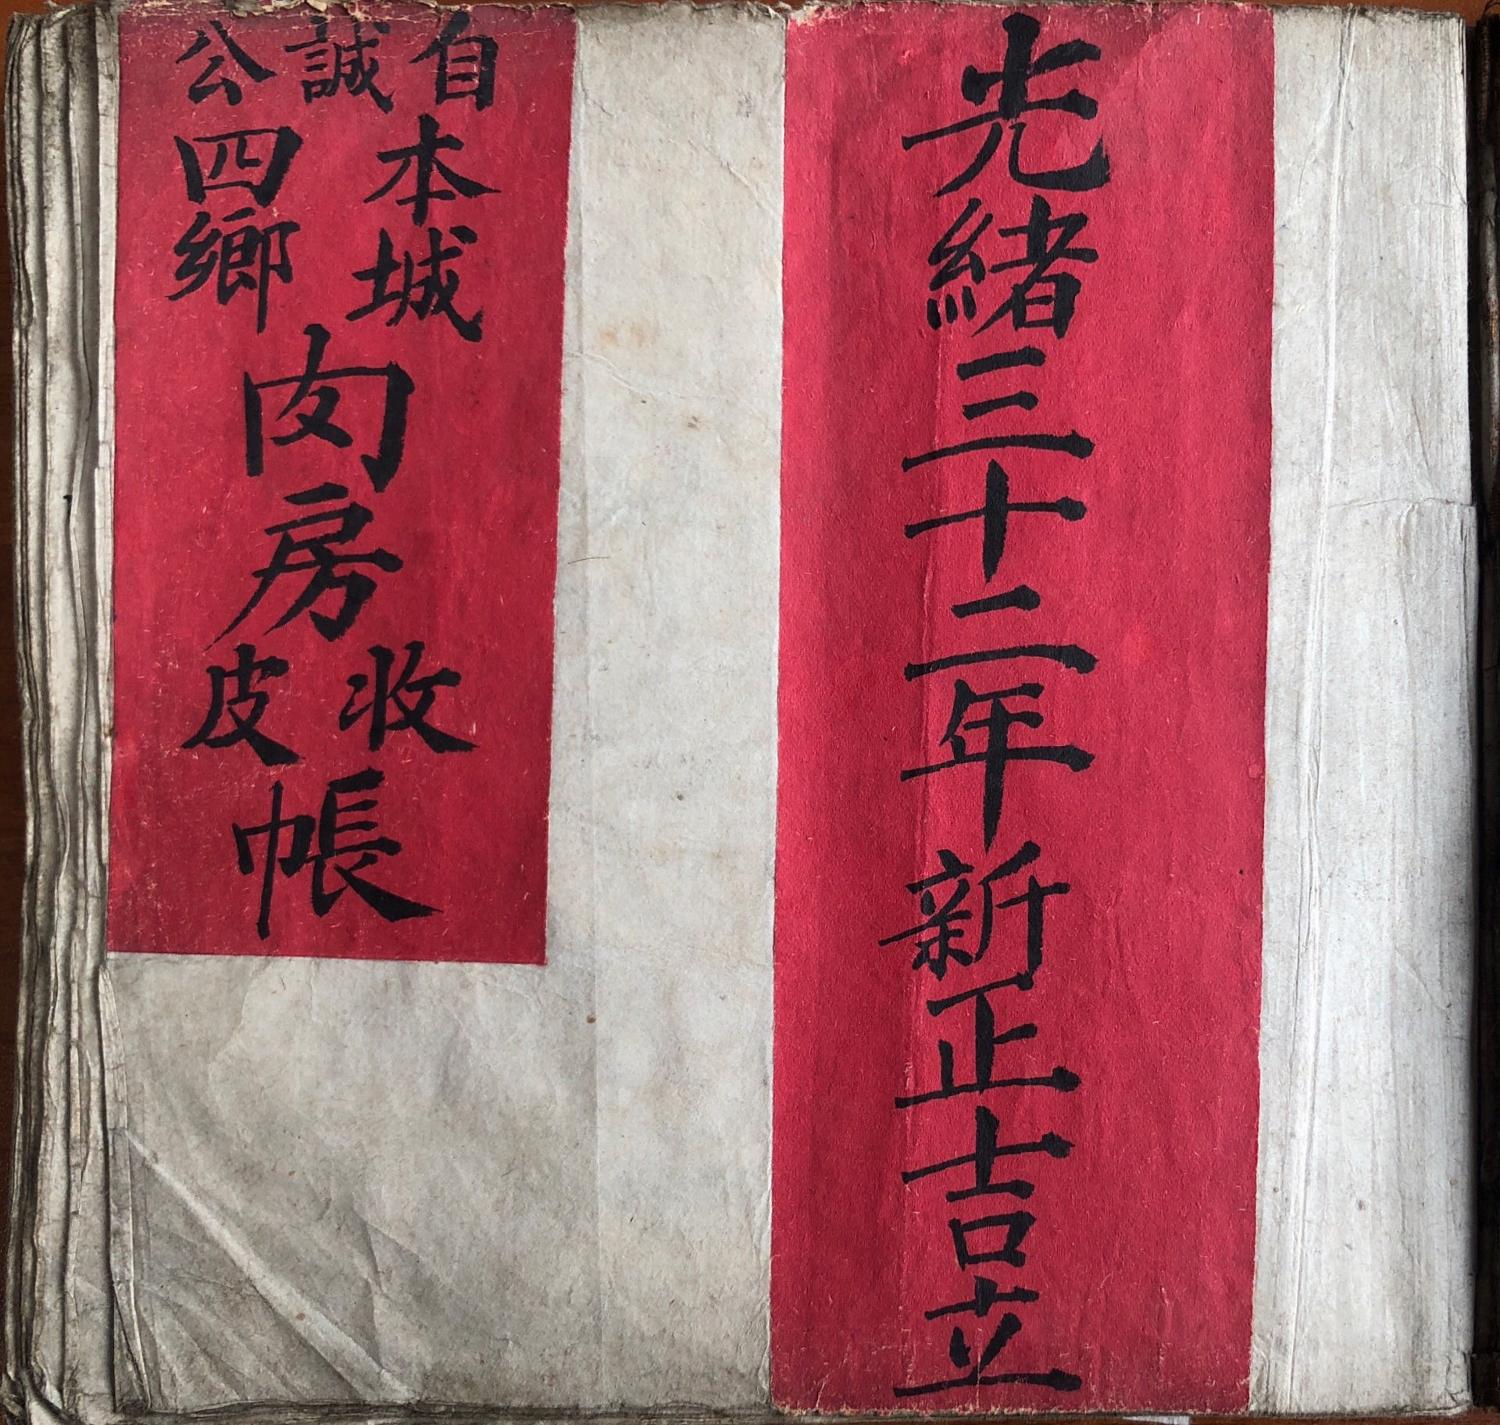 光緒三十二年新正吉立
自誠公
本城
四鄉
肉房
收皮
帳